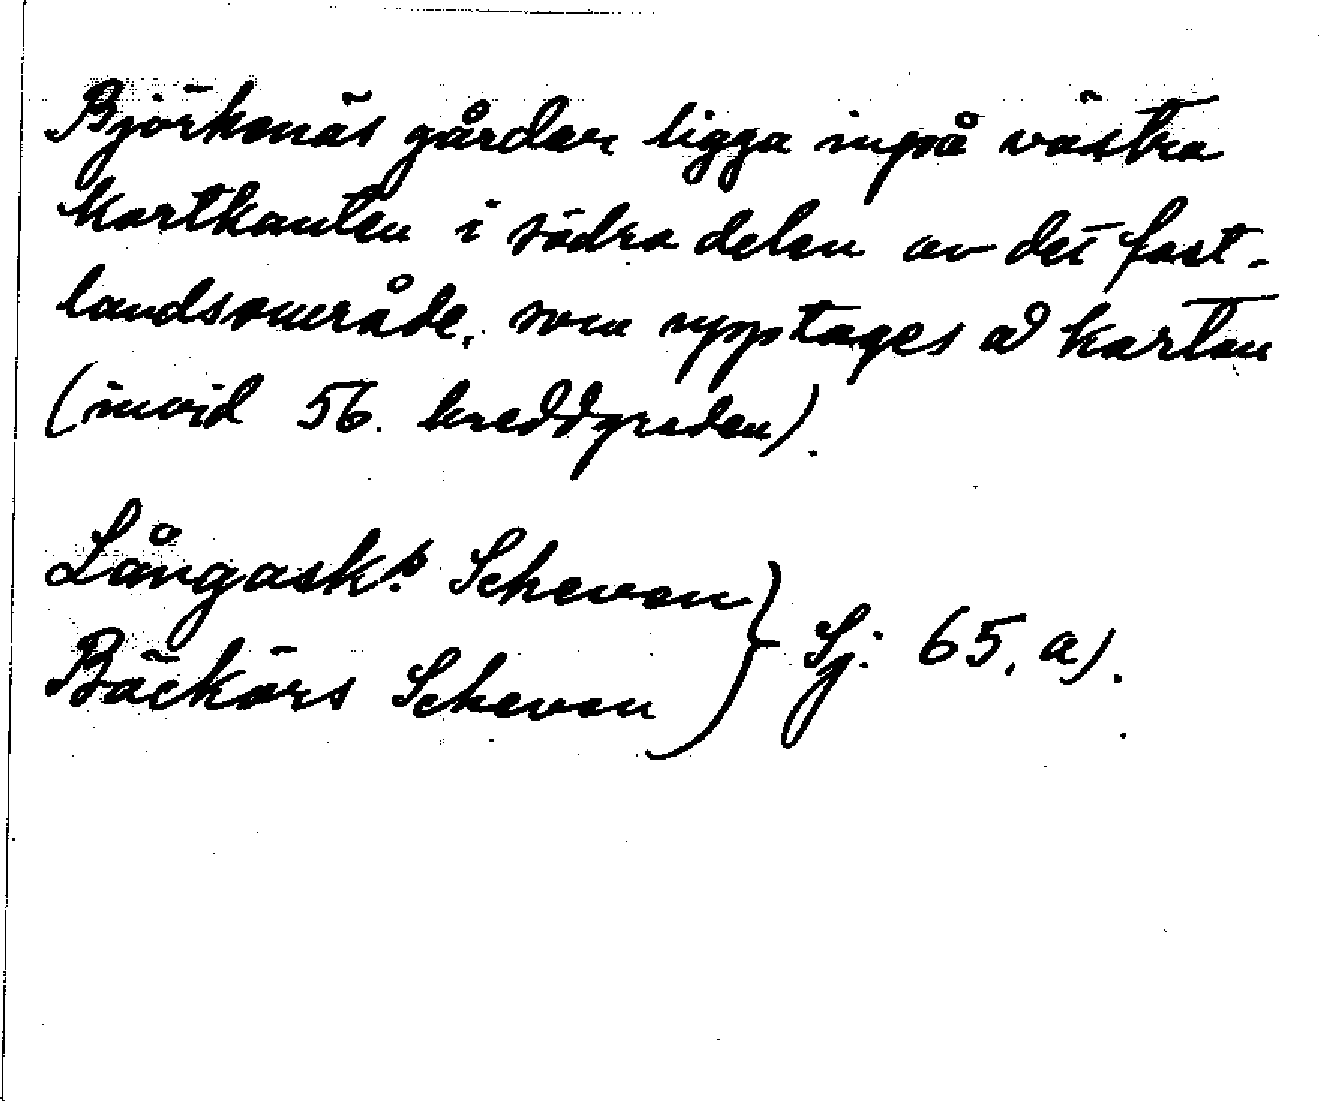 Björknäs gårdar ligga inpå västra
kartkanten i södra delen av det fast-
landsområde, som upptages å kartan
(invid 56. breddgraden).
Långask:s Schevan
Bäckörs Schevan } Sj: 65, a).